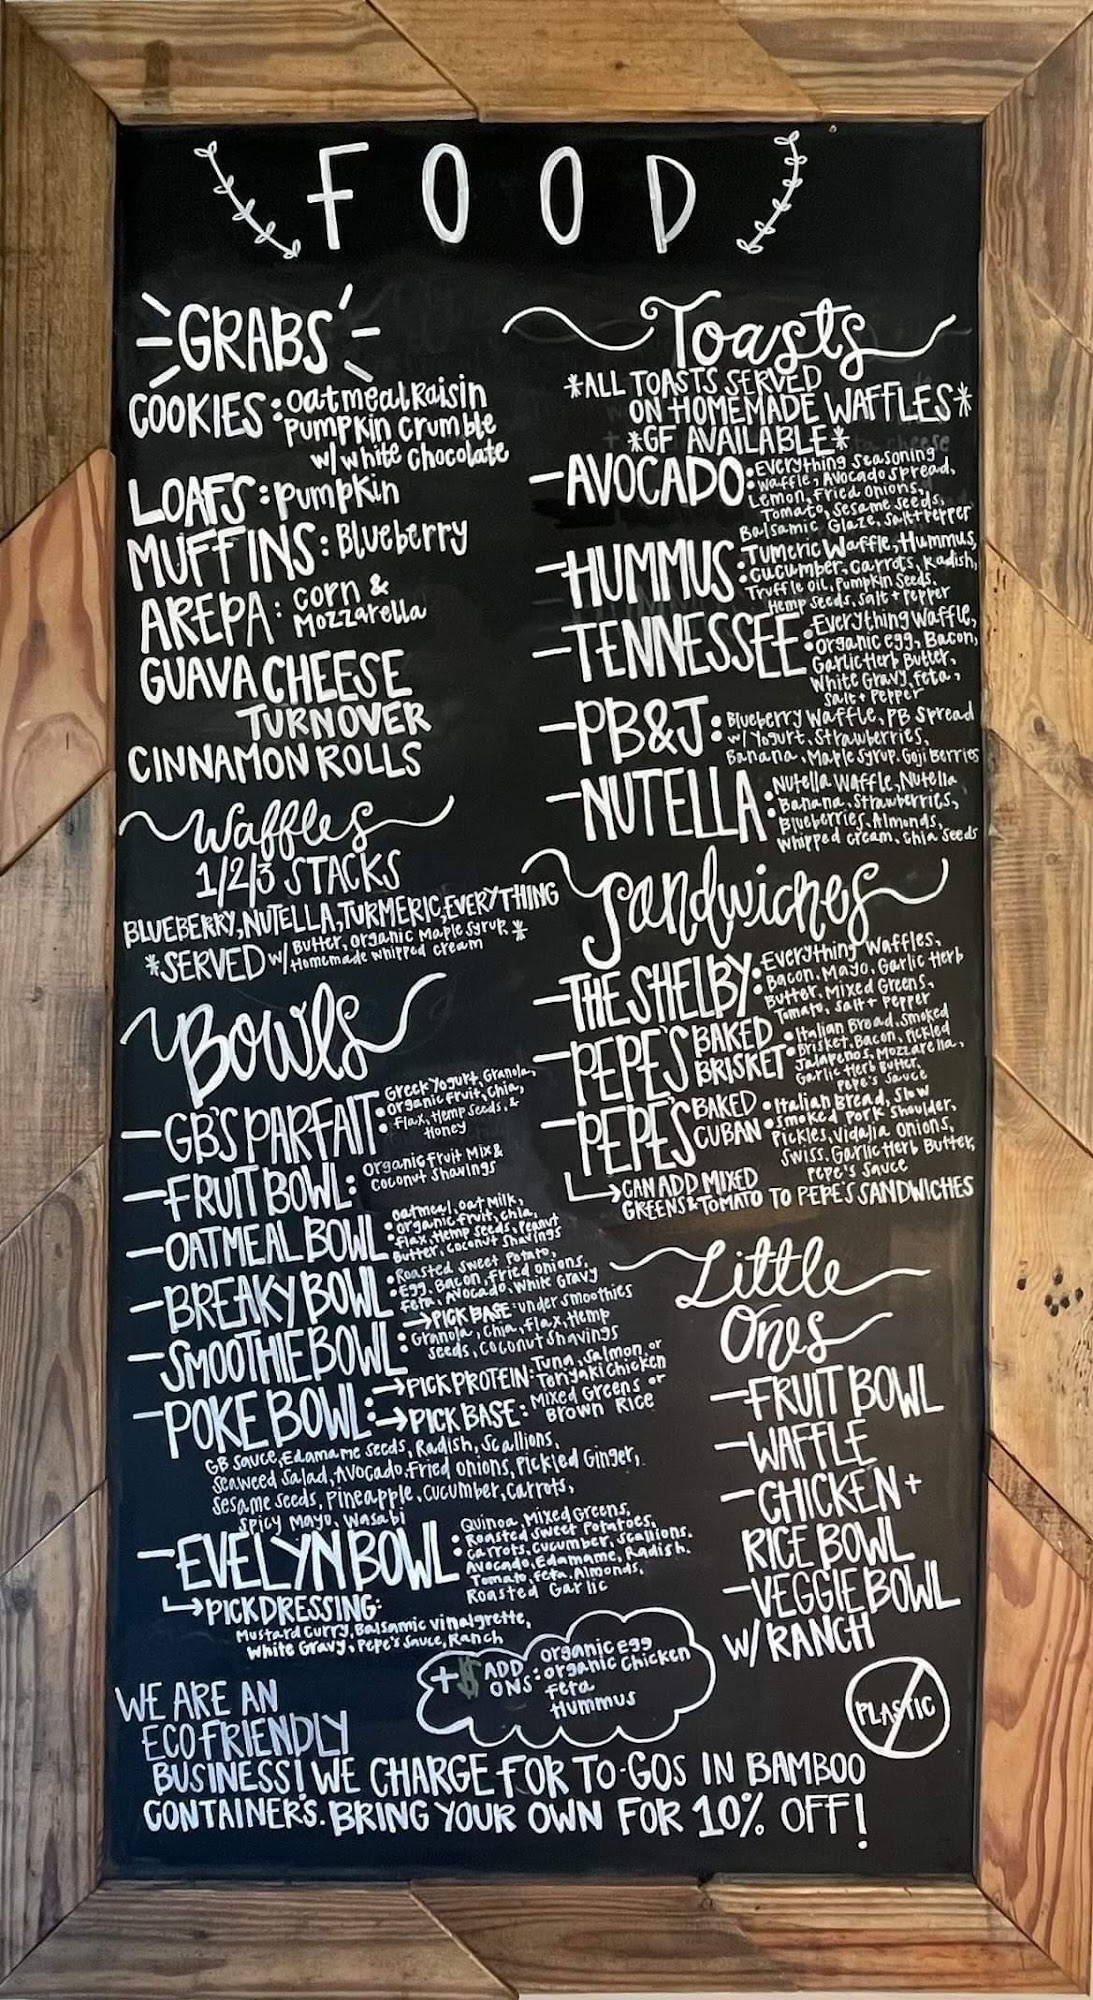 FOOD
GRABS
COOKIES: Oatmeal Raisin
Pumpkin Crumble
w/ white Chocolate
LOAFS: Pumpkin
MUFFINS: Blueberry
AREPA: corn &
Mozzarella
GUAVA CHEESE
TURNOVER
CINNAMON ROLLS
Waffles
1/2/3 STACKS
BLUEBERRY, NUTELLA, TURMERIC, EVERYTHING
*SERVED w/ Butter, Organic Maple Syrup, *
Homemade whipped cream
Bowls
- GB'S PARFAIT: Greek Yogurt, Granola,
Organic Fruit, Chia,
Flax, Hemp Seeds, &
Honey
- FRUIT BOWL: Organic Fruit Mix &
Coconut Shavings
- OATMEAL BOWL: Oatmeal, Oat Milk,
Organic Fruit, Chia,
Flax, Hemp Seeds, Peanut
Butter, Coconut Shavings
- BREAKY BOWL: Roasted Sweet Potato,
Egg, Bacon, Fried Onions,
Feta, Avocado, White Gravy
- SMOOTHIE BOWL: → PICK BASE: under smoothies
Granola, Chia, Flax, Hemp
Seeds, Coconut Shavings
- POKE BOWL: → PICK PROTEIN: Tuna, Salmon or
Teriyaki Chicken
→ PICK BASE: Mixed Greens or
Brown Rice
GB Sauce, Edamame Seeds, Radish, Scallions,
Seaweed Salad, Avocado, Fried Onions, Pickled Ginger,
Sesame Seeds, Pineapple, Cucumber, Carrots,
Spicy Mayo, Wasabi
- EVELYN BOWL: Quinoa, Mixed Greens,
Roasted Sweet Potatoes,
Carrots, Cucumber, Scallions,
Avocado, Edamame, Radish,
Tomato, Feta, Almonds,
Roasted Garlic
→ PICK DRESSING:
Mustard Curry, Balsamic Vinaigrette,
White Gravy, Pepe's Sauce, Ranch
+$ ADD ONS: Organic Egg
Organic Chicken
Feta
Hummus
Toasts
*ALL TOASTS SERVED
ON HOMEMADE WAFFLES*
*GF AVAILABLE*
- AVOCADO: Everything Seasoning
Waffle, Avocado Spread,
Lemon, Fried Onions,
Tomato, Sesame Seeds,
Balsamic Glaze, Salt + Pepper
- HUMMUS: Tumeric Waffle, Hummus,
Cucumber, Carrots, Radish,
Truffle Oil, Pumpkin Seeds,
Hemp Seeds, Salt + Pepper
- TENNESSEE: Everything Waffle,
Organic Egg, Bacon,
Garlic Herb Butter,
White Gravy, Feta,
Salt + Pepper
- PB&J: Blueberry Waffle, PB Spread
w/ Yogurt, Strawberries,
Banana, Maple Syrup, Goji Berries
- NUTELLA: Nutella Waffle, Nutella
Banana, Strawberries,
Blueberries, Almonds,
Whipped Cream, Chia Seeds
Sandwiches
- THE SHELBY: Everything Waffles,
Bacon, Mayo, Garlic Herb
Butter, Mixed Greens,
Tomato, Salt + Pepper
- PEPE'S BAKED BRISKET: Italian Bread, Smoked
Brisket, Bacon, Pickled
Jalapenos, Mozzarella,
Garlic Herb Butter,
Pepe's Sauce
- PEPE'S BAKED CUBAN: Italian Bread, Slow
Smoked Pork Shoulder,
Pickles, Vidalia Onions,
Swiss, Garlic Herb Butter,
Pepe's Sauce
→ CAN ADD MIXED
GREENS & TOMATO TO PEPE'S SANDWICHES
Little
Ones
- FRUIT BOWL
- WAFFLE
- CHICKEN +
RICE BOWL
- VEGGIE BOWL
W/ RANCH
PLASTIC
WE ARE AN
ECO FRIENDLY
BUSINESS! WE CHARGE FOR TO-GOS IN BAMBOO
CONTAINERS. BRING YOUR OWN FOR 10% OFF!